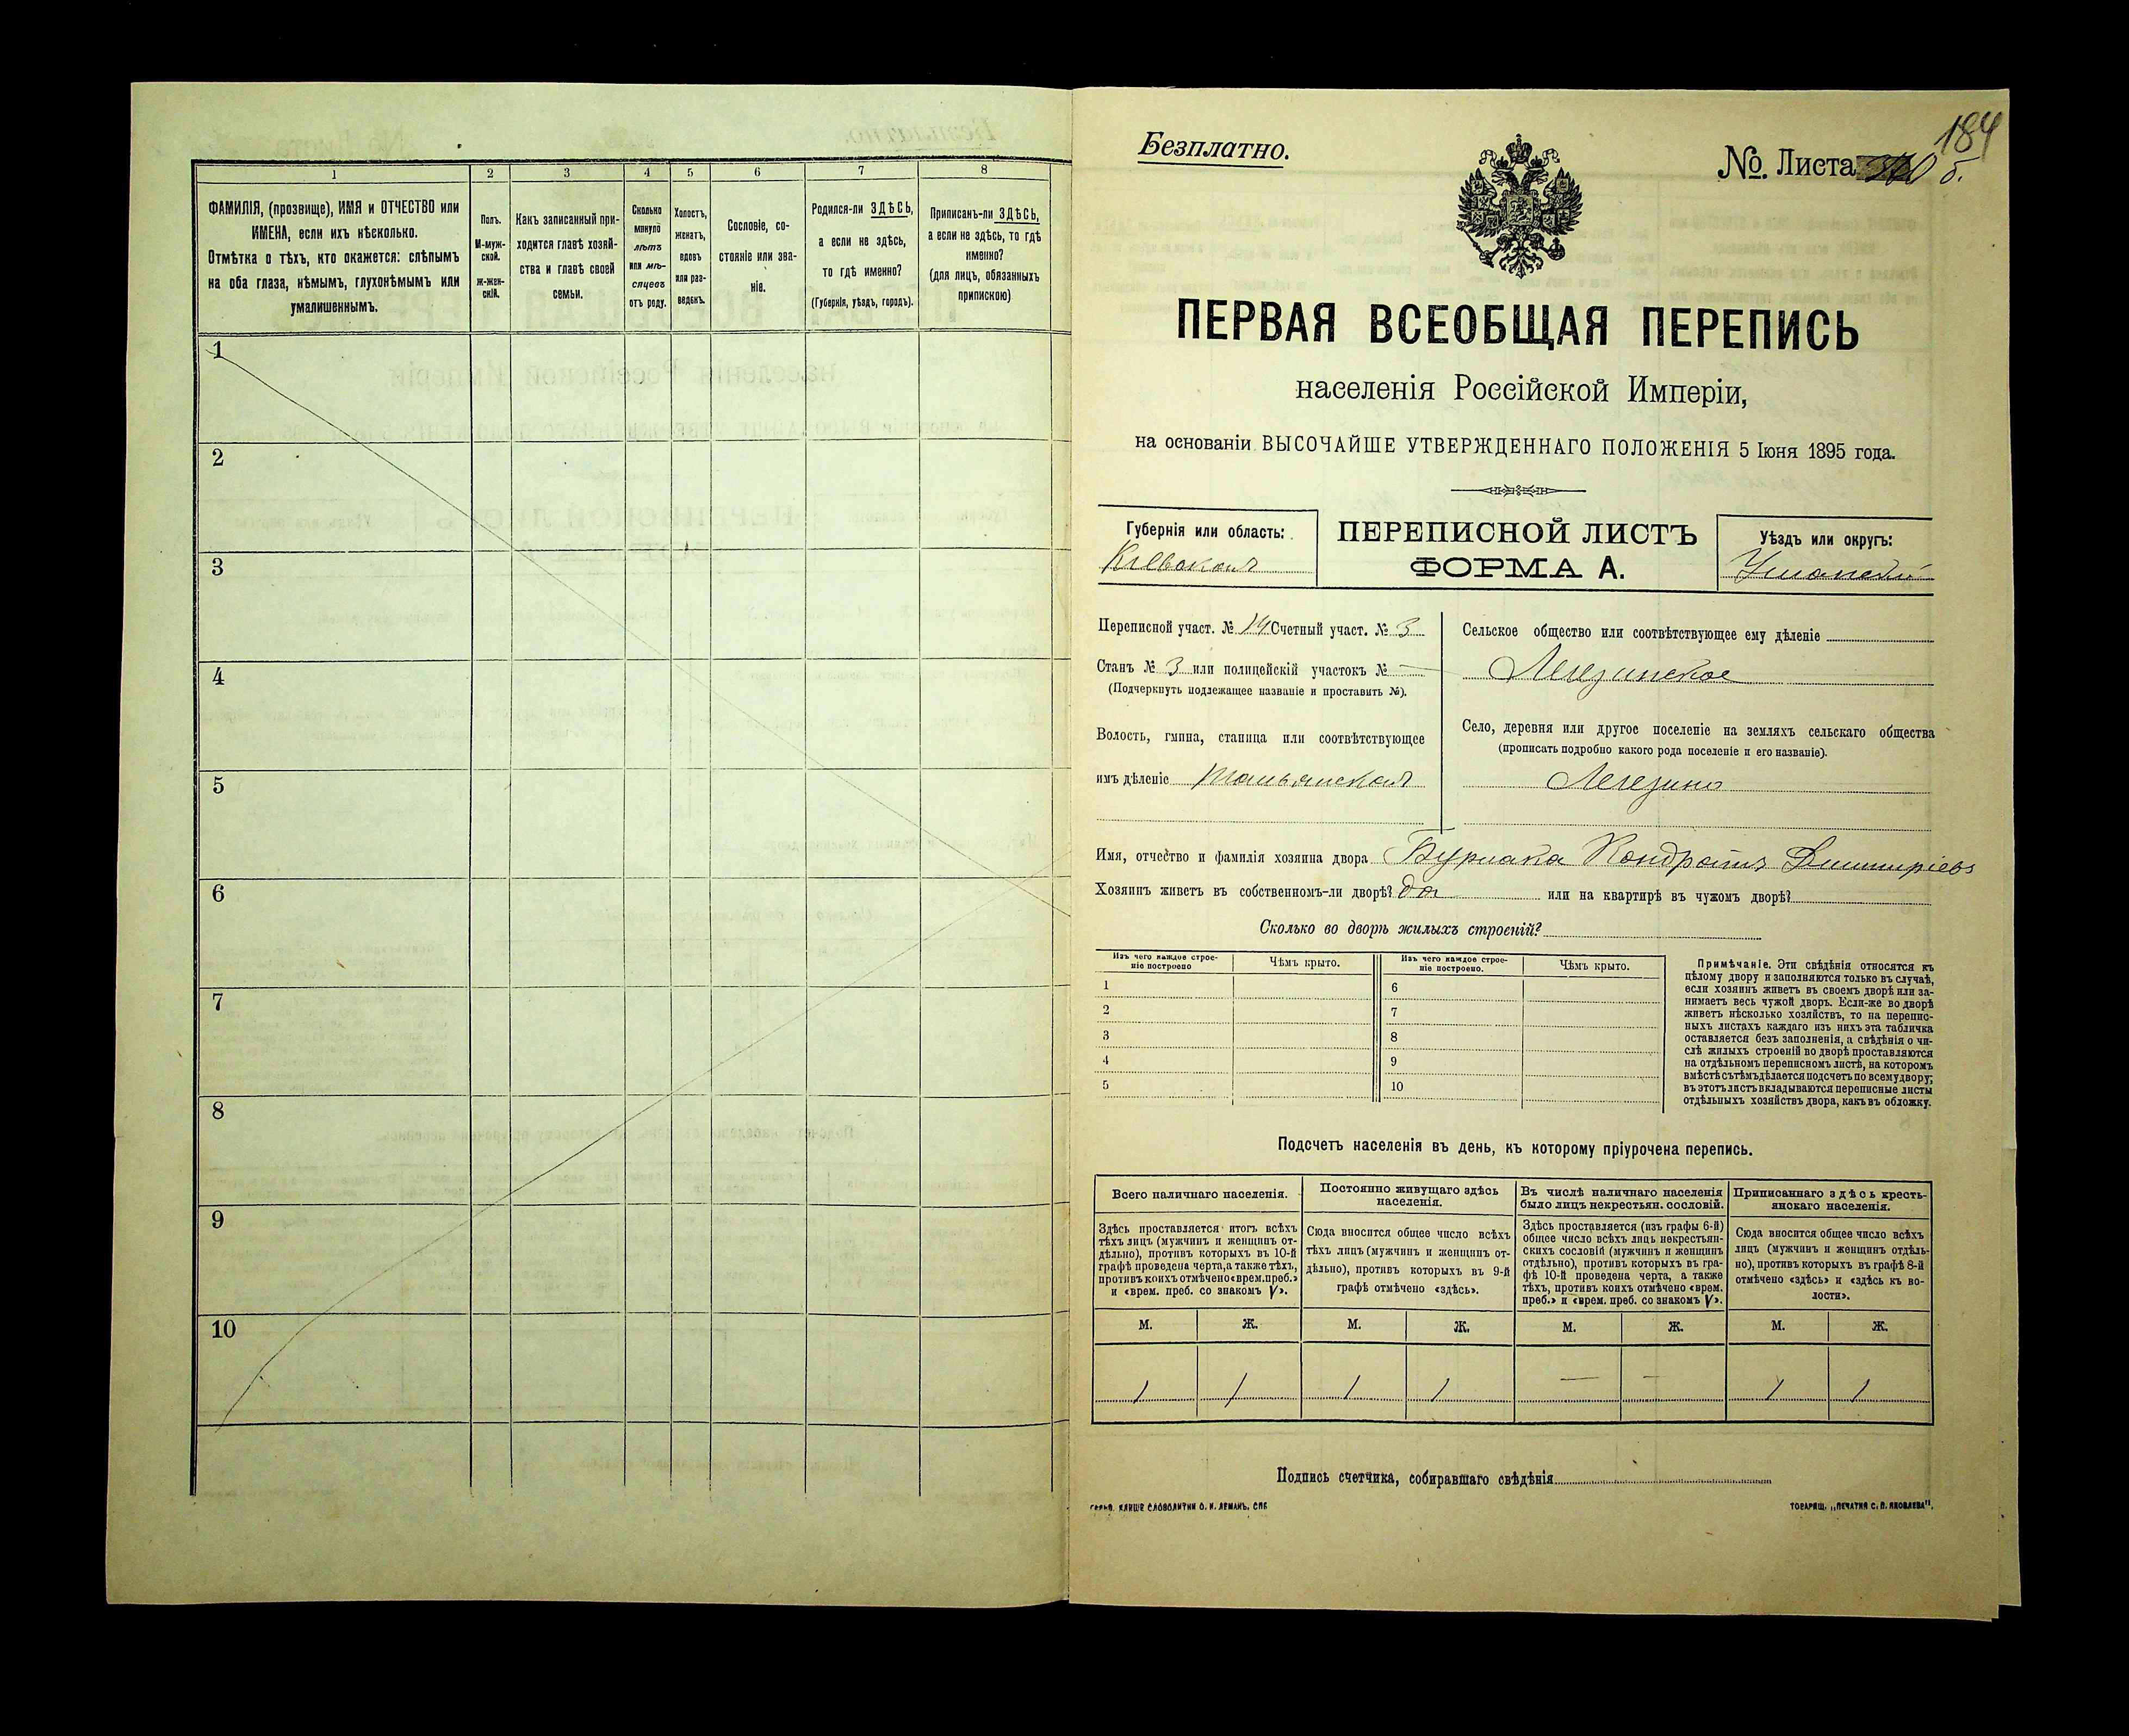 1
2
3
4
5
6
7
8
ФАМИЛІЯ, (прозвище), ИМЯ и ОТЧЕСТВО или
ИМЕНА, если ихъ нѣсколько.
Отмѣтка о тѣхъ, кто окажется: слѣпымъ
на оба глаза, нѣмымъ, глухонѣмымъ или
умалишеннымъ.
Полъ.
М-муж-
ской.
Ж-жен-
скій.
Какъ записанный при-
ходится главѣ хозяй-
ства и главѣ своей
семьи.
Сколько
минуло
лѣтъ
или мѣ-
сяцевъ
отъ роду.
Холостъ,
женатъ,
вдовъ
или раз-
веденъ.
Сословіе, со-
стояніе или зва-
ніе.
Родился-ли ЗДѢСЬ,
а если не здѣсь,
то гдѣ именно?
(Губернія, уѣздъ, городъ).
Приписанъ-ли ЗДѢСЬ,
а если не здѣсь, то гдѣ
именно?
(для лицъ, обязанныхъ
припискою)
1
2
3
4
5
6
7
8
9
10
184
Безплатно.
№. Листа б.
ПЕРВАЯ ВСЕОБЩАЯ ПЕРЕПИСЬ
населенія Россійской Имперіи,
на основаніи ВЫСОЧАЙШЕ УТВЕРЖДЕННАГО ПОЛОЖЕНІЯ 5 Іюня 1895 года.
Губернія или область:
Кіевская
ПЕРЕПИСНОЙ ЛИСТЪ
ФОРМА А.
Уѣздъ или округъ:
Уманскій
Переписной участ. № 14 Счетный участ. № 3
Станъ № 3 или полицейскій участокъ № —
(Подчеркнуть подлежащее названіе и проставить №).
Волость, гмина, станица или соотвѣтствующее
имъ дѣленіе Тальянская
Сельское общество или соотвѣтствующее ему дѣленіе
Легезинское
Село, деревня или другое поселеніе на земляхъ сельскаго общества
(прописать подробно какого рода поселеніе и его названіе).
Легезино
Имя, отчество и фамилія хозяина двора Бурлака Кондратъ Дмитріевъ
Хозяинъ живетъ въ собственномъ-ли дворѣ? да или на квартирѣ въ чужомъ дворѣ?
Сколько во дворѣ жилыхъ строеній?
Изъ чего каждое строе-
ніе построено
Чѣмъ крыто.
Изъ чего каждое строе-
ніе построено.
Чѣмъ крыто.
1
2
3
4
5
6
7
8
9
10
Примѣчаніе. Эти свѣдѣнія относятся къ
цѣлому двору и заполняются только въ случаѣ,
если хозяинъ живетъ въ своемъ дворѣ или за-
нимаетъ весь чужой дворъ. Если-же во дворѣ
живетъ нѣсколько хозяйствъ, то на перепис-
ныхъ листахъ каждаго изъ нихъ эта табличка
оставляется безъ заполненія, а свѣдѣнія о чи-
слѣ жилыхъ строеній во дворѣ проставляются
на отдѣльномъ переписномъ листѣ, на которомъ
вмѣстѣ съ тѣмъ дѣлается подсчетъ по всему двору;
въ этотъ листъ вкладываются переписные листы
отдѣльныхъ хозяйствъ двора, какъ въ обложку.
Подсчетъ населенія въ день, къ которому пріурочена перепись.
Всего наличнаго населенія.
Здѣсь проставляется итогъ всѣхъ
тѣхъ лицъ (мужчинъ и женщинъ от-
дѣльно), противъ которыхъ въ 10-й
графѣ проведена черта, а также тѣхъ,
противъ коихъ отмѣчено «врем. преб.»
и «врем. преб. со знакомъ V».
Постоянно живущаго здѣсь
населенія.
Сюда вносится общее число всѣхъ
тѣхъ лицъ (мужчинъ и женщинъ от-
дѣльно), противъ которыхъ въ 9-й
графѣ отмѣчено «здѣсь».
Въ числѣ наличнаго населенія
было лицъ некрестьян. сословій.
Здѣсь проставляется (изъ графы 6-й)
общее число всѣхъ лицъ некрестьян-
скихъ сословій (мужчинъ и женщинъ
отдѣльно), противъ которыхъ въ гра-
фѣ 10-й проведена черта, а также
тѣхъ, противъ коихъ отмѣчено «врем.
преб.» и «врем. преб. со знакомъ V».
Приписаннаго здѣсь кресть-
янскаго населенія.
Сюда вносится общее число всѣхъ
лицъ (мужчинъ и женщинъ отдѣль-
но), противъ которыхъ въ графѣ 8-й
отмѣчено «здѣсь» и «здѣсь къ во-
лости».
М. Ж. М. Ж. М. Ж. М. Ж.
1 1 1 1 — — 1 1
Подпись счетчика, собиравшаго свѣдѣнія
КЛИШЕ СЛОВОЛИТНИ О. И. ЛЕМАНЪ, СПБ
ТОВАРИЩ. „ПЕЧАТНЯ С. П. ЯКОВЛЕВА".